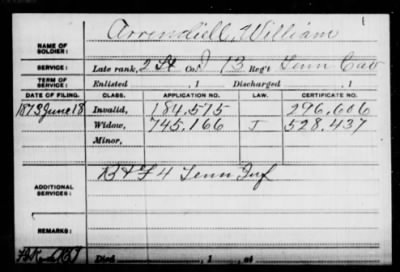 1
Arrendiell, William
NAME OF SOLDIER:
SERVICE: Late rank, 2 Lt Co. I 13 Reg't Tenn Cav
TERM OF SERVICE: Enlisted , 1 Discharged , 1
DATE OF FILING. CLASS. APPLICATION NO. LAW. CERTIFICATE NO.
1873 June 18 Invalid, 184,575 296,606
Widow, 745,166 I 528,437
Minor,
ADDITIONAL SERVICES: F 4 Tenn Inf
REMARKS:
Died , 1 , at